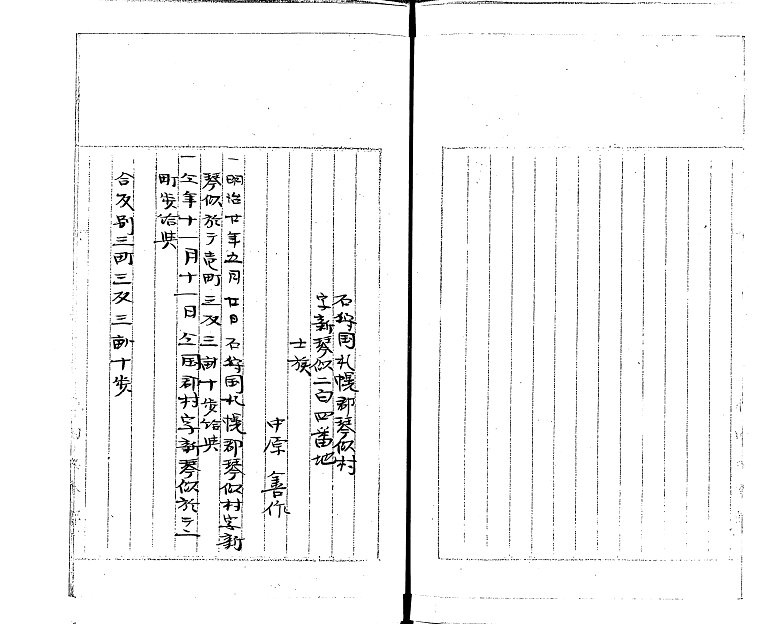 石狩国札幌郡琴似村
字新琴似二百四番地
士族
中原 善作
一 明治廿年五月廿日 石狩国札幌郡琴似村字新
琴似於テ壱町三反三畝十歩給与
一 仝年十一月十一日 仝国郡村字新琴似於テ二
町歩給与
合反別三町三反三畝十歩